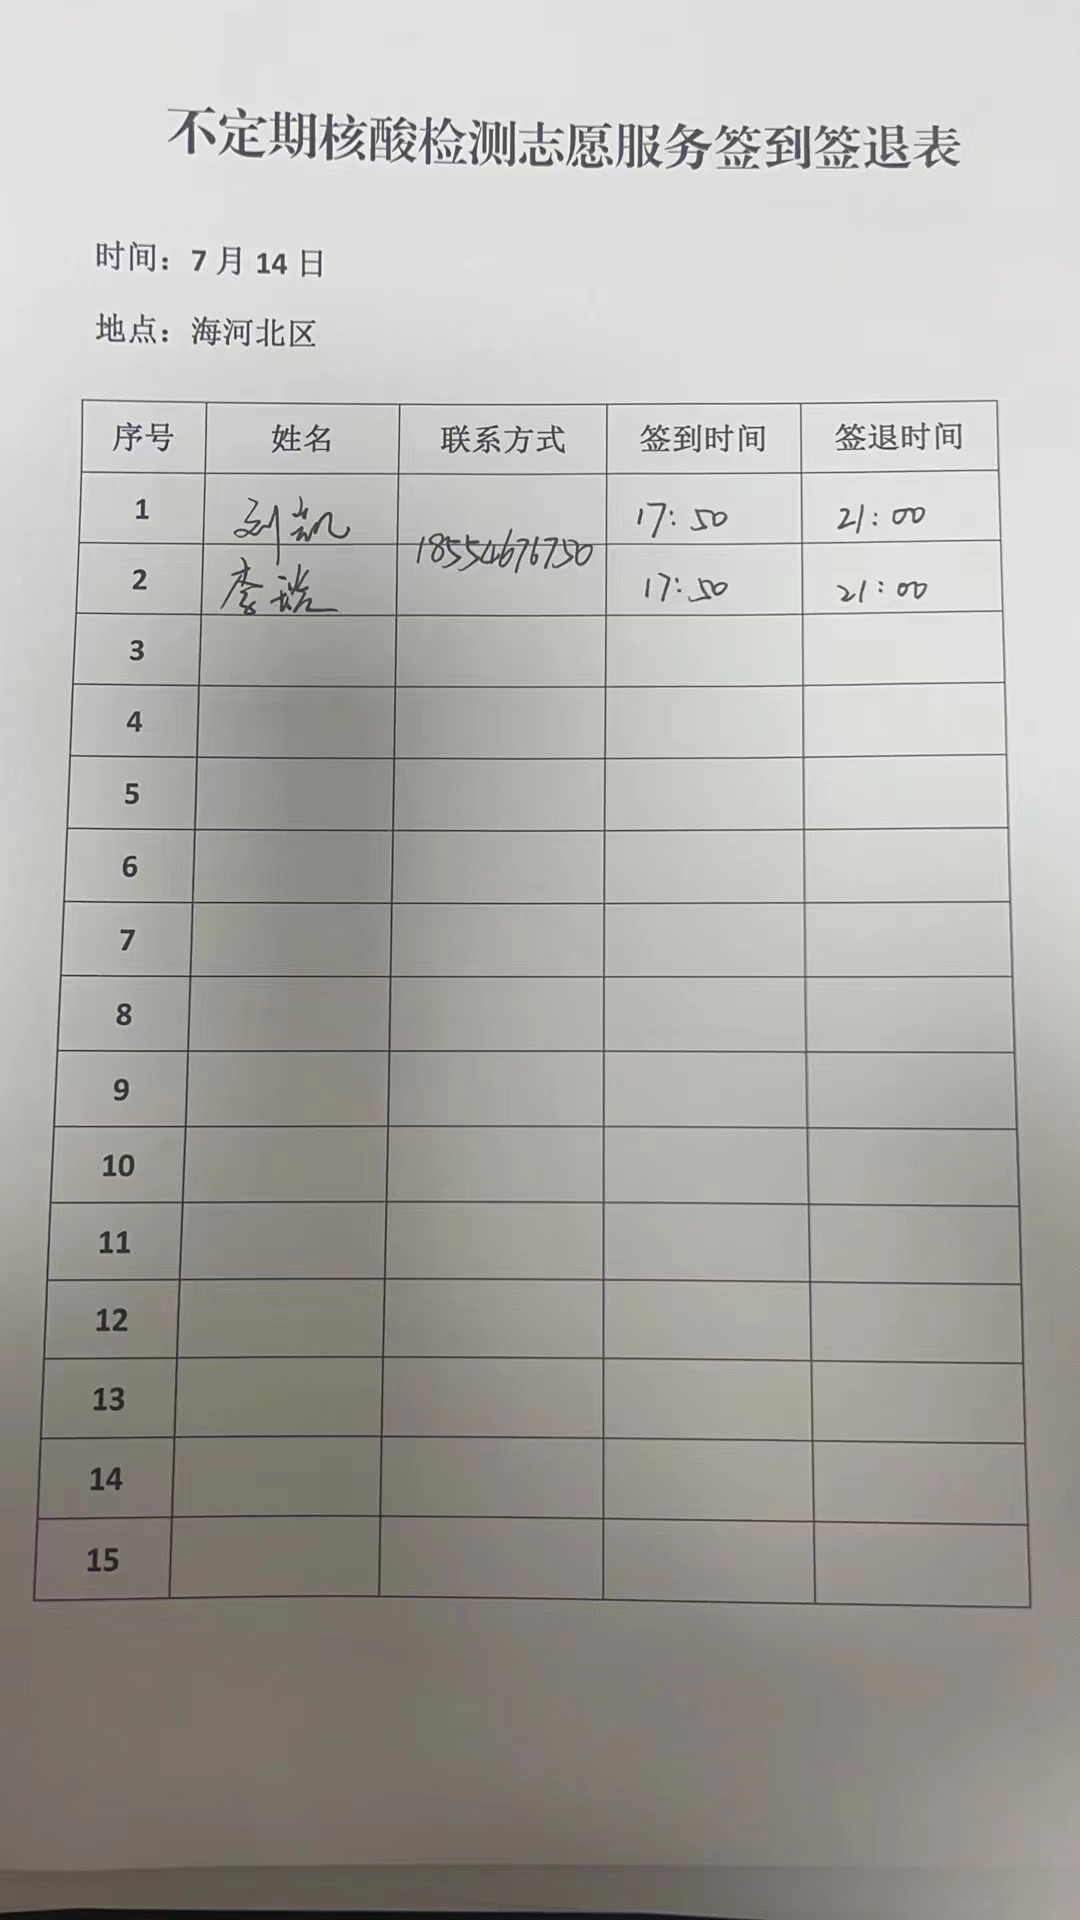 不定期核酸检测志愿服务签到签退表
时间：7 月 14 日
地点：海河北区
序号 姓名 联系方式 签到时间 签退时间
1 刘凯 18554676750 17:50 21:00
2 李 17:50 21:00
3
4
5
6
7
8
9
10
11
12
13
14
15